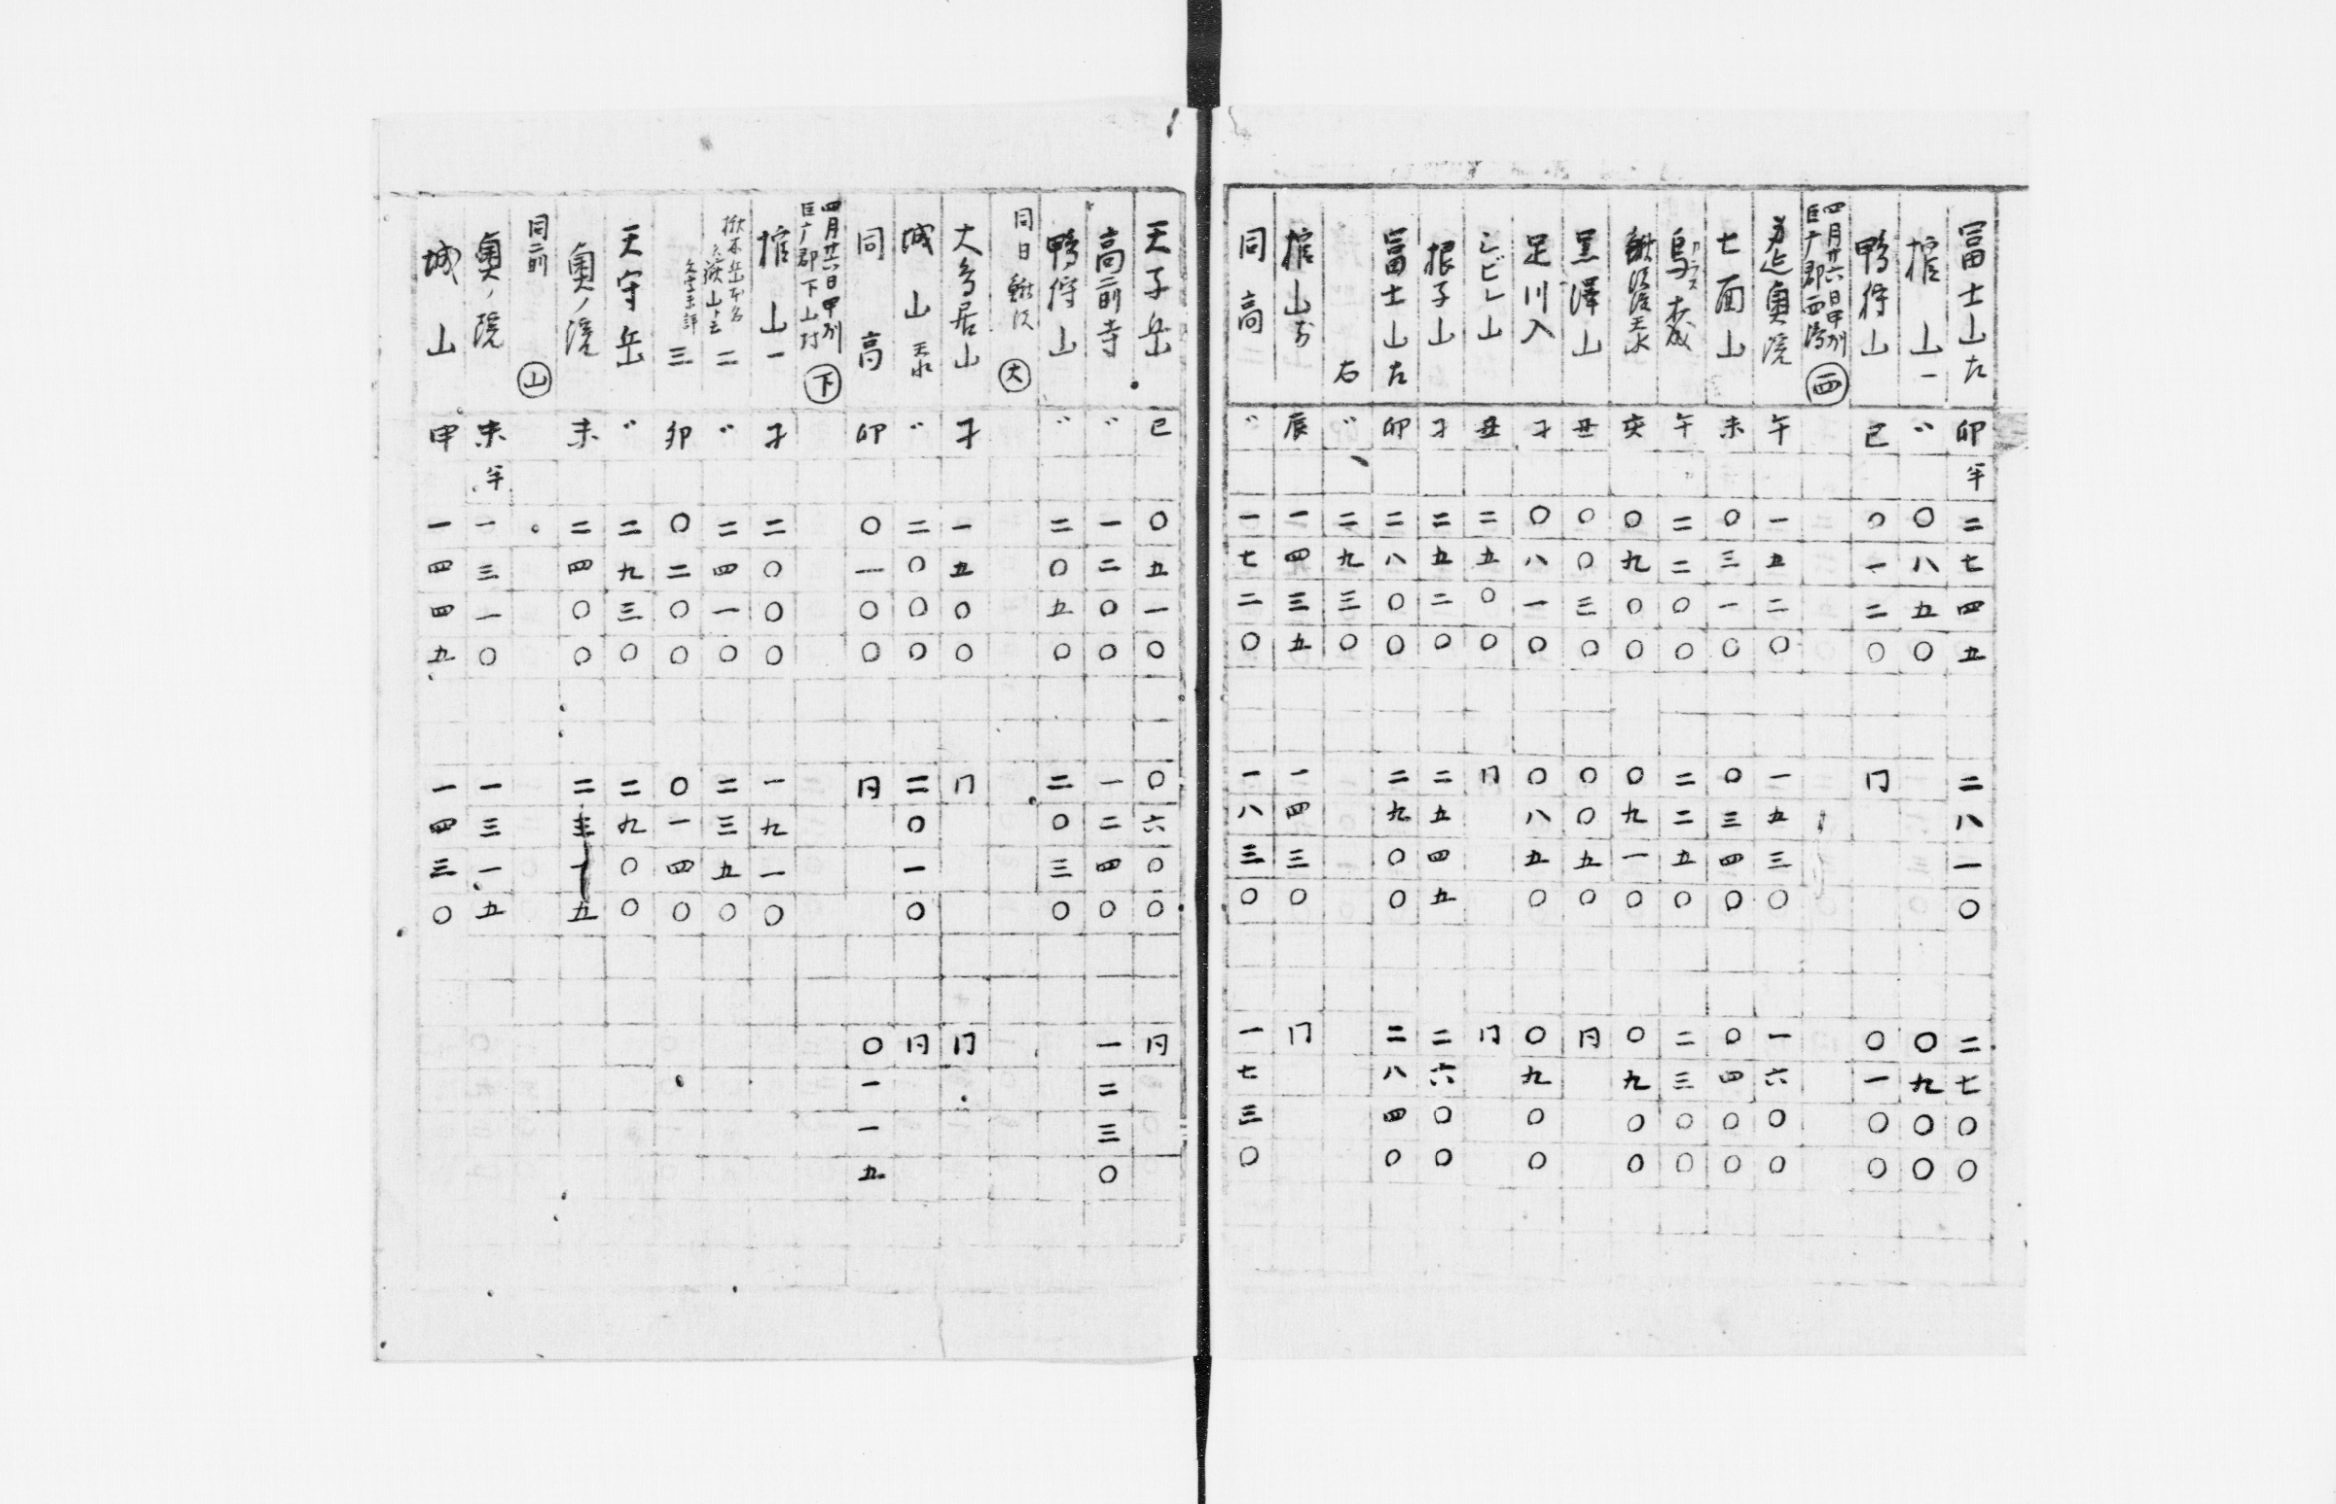 富士山左 卯半 二七四五 二八一〇 二七〇〇
山一 〃 〇八五〇 〇九〇〇
鴨狩山 巳 〇一二〇 冂 〇一〇〇
四月廿六日甲州
巨广郡西島 西
身延奥院 午 一五二〇 一五三〇 一六〇〇
七面山 未 〇三一〇 〇三四〇 〇四〇〇
烏森 午 二二〇〇 二二五〇 二三〇〇
亥 〇九〇〇 〇九一〇 〇九〇〇
黒澤山 丑 〇〇三〇 〇〇五〇 冃
足川入 子 〇八一〇 〇八五〇 〇九〇〇
シビレ山 丑 二五〇〇 冂 冂
根子山 子 二五二〇 二五四五 二六〇〇
富士山左 卯 二八〇〇 二九〇〇 二八四〇
右 〃 二九三〇
山 辰 一四三五 一四三〇 冂
同高 〃 一七二〇 一八三〇 一七三〇
天子岳 巳 〇五一〇 〇六〇〇 冃
高前寺 〃 一二〇〇 一二四〇 一二三〇
鴨狩山 〃 二〇五〇 二〇三〇
同日 鰍沢 大
大多居山 子 一五〇〇 冂 冂
城山 〃 二〇〇〇 二〇一〇 冃
同高 卯 〇一〇〇 冃 〇一一五
四月廿六日甲州
巨广郡下山村 下
山一 子 二〇〇〇 一九一〇
二 〃 二四一〇 二三五〇
三 卯 〇二〇〇 〇一四〇
天守岳 〃 二九三〇 二九〇〇
奥ノ院 未 二四〇〇 二三一五
同前 山
奥ノ院 未半 一三一〇 一三一五
城山 申 一四四五 一四三〇